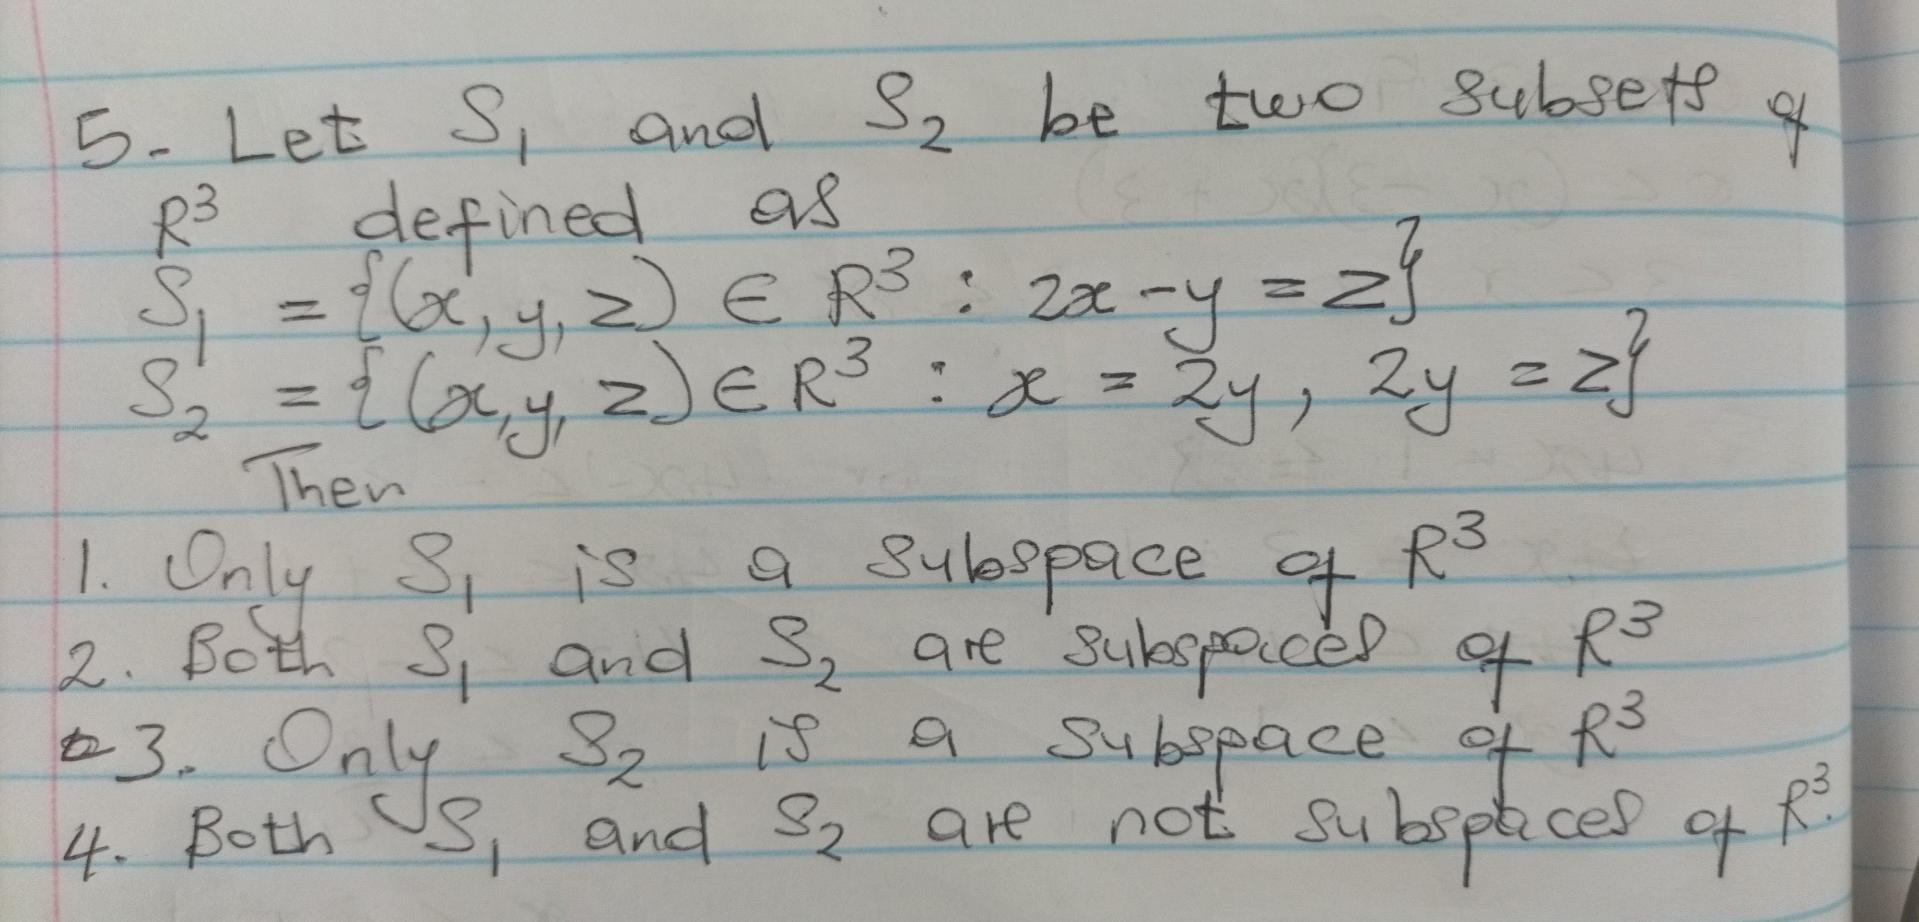 5. Let S₁ and S₂ be two subsets of
R³ defined as
S₁ = {(x, y, z) ∈ R³ : 2x - y = z}
S₂ = {(x, y, z) ∈ R³ : x = 2y, 2y = z}
Then
1. Only S₁ is a subspace of R³
2. Both S₁ and S₂ are subspaces of R³
3. Only S₂ is a subspace of R³
4. Both S₁ and S₂ are not subspaces of R³.